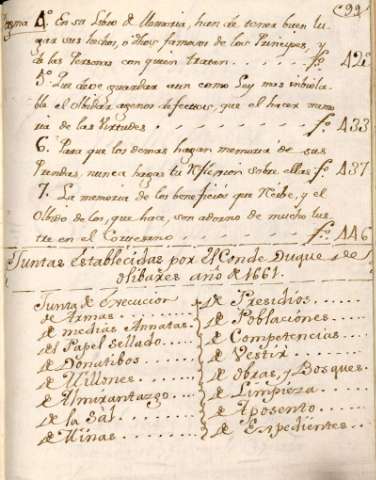 (99
4.º En su Libro de Memoria, han de tener buen lu-
gar sus hechos, o dhos famosos de los Principes, y
de las Personas con quien traten . . . . . fº. 42
5.º Que deve guardar aun como Ley mas inviola-
ble el olbidar agenos defectos, que el hacer memo-
ria de las Virtudes . . . . . fº. 433
6. Para que los demas hagan memoria de sus
Prendas, nunca hagas tu Reflexion sobre ellas fº. 437
7. La memoria de los beneficios que Recibe, y el
Olbido de los, que hace, son adorno de mucho lus-
tre en el Cortesano . . . . . fº. 446
Juntas establecidas por el Conde Duque de
Olibares año de 1661.
Junta de Execucion
de Armas
de medias Annatas
del Papel Sellado
de Donatibos
de Millones
de Almirantazgo
de la Sal
de Minas
de Presidios
de Poblaciónes
de Competencias
de Vestir
de obras, y Bosques
de Limpieza
de Aposento
de Expedientes